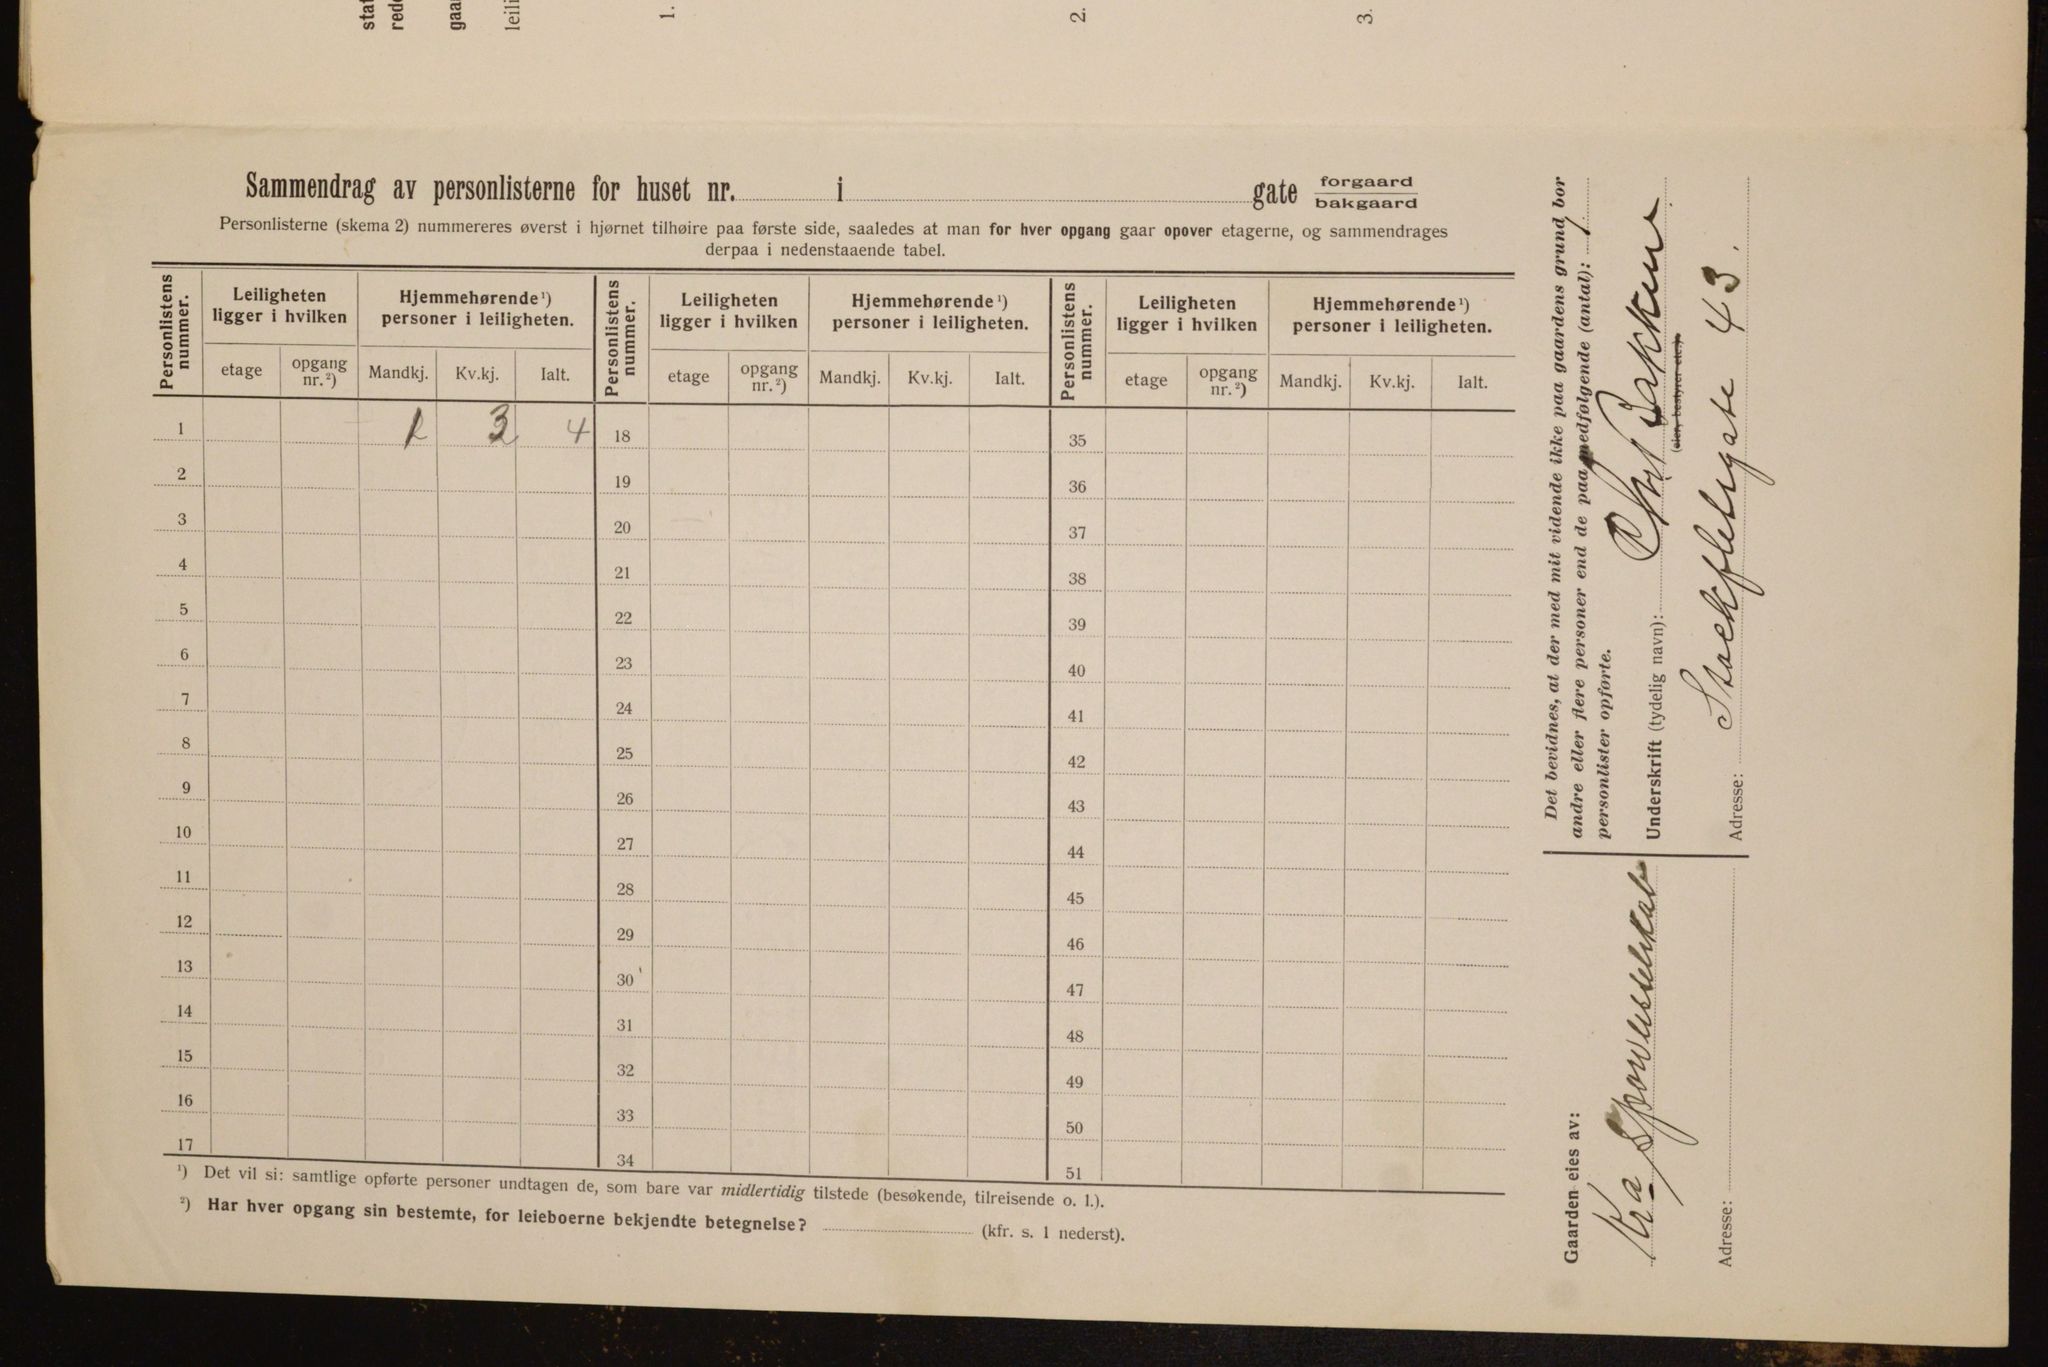 stat
rede
gaa
leili
1.
2.
3.
Sammendrag av personlisterne for huset nr. i gate forgaard
bakgaard
Personlisterne (skema 2) nummereres øverst i hjørnet tilhøire paa første side, saaledes at man for hver opgang gaar opover etagerne, og sammendrages
derpaa i nedenstaaende tabel.
Personlistens nummer. Leiligheten ligger i hvilken Hjemmehørende¹) personer i leiligheten. Personlistens nummer. Leiligheten ligger i hvilken Hjemmehørende¹) personer i leiligheten. Personlistens nummer. Leiligheten ligger i hvilken Hjemmehørende¹) personer i leiligheten.
etage opgang nr.²) Mandkj. Kv.kj. Ialt. etage opgang nr.²) Mandkj. Kv.kj. Ialt. etage opgang nr.²) Mandkj. Kv.kj. Ialt.
1 1 3 4 18 35
2 19 36
3 20 37
4 21 38
5 22 39
6 23 40
7 24 41
8 25 42
9 26 43
10 27 44
11 28 45
12 29 46
13 30 47
14 31 48
15 32 49
16 33 50
17 34 51
¹) Det vil si: samtlige opførte personer undtagen de, som bare var midlertidig tilstede (besøkende, tilreisende o. l.).
²) Har hver opgang sin bestemte, for leieboerne bekjendte betegnelse? (kfr. s. 1 nederst).
Det bevidnes, at der med mit vidende ikke paa gaardens grund bor
andre eller flere personer end de paa medfølgende (antal): 1
personlister opførte.
Underskrift (tydelig navn): Chr Bakken
(eier, bestyrer etc.)
Adresse: Stockflethsgate 43.
Gaarden eies av:
Kra Sporveisselskab
Adresse: